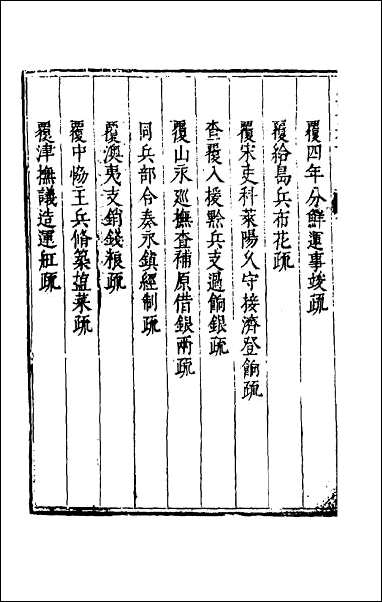 覆四年分鮮運事竣疏
覆給島兵布花疏
覆宋吏科萊陽久守接濟登餉疏
查覆入援黔兵支過餉銀疏
覆山永巡撫查補原借銀兩疏
同兵部合奏永鎮經制疏
覆澳夷支銷錢糧疏
覆中協王兵脩築塩菜疏
覆津撫議造運舡疏